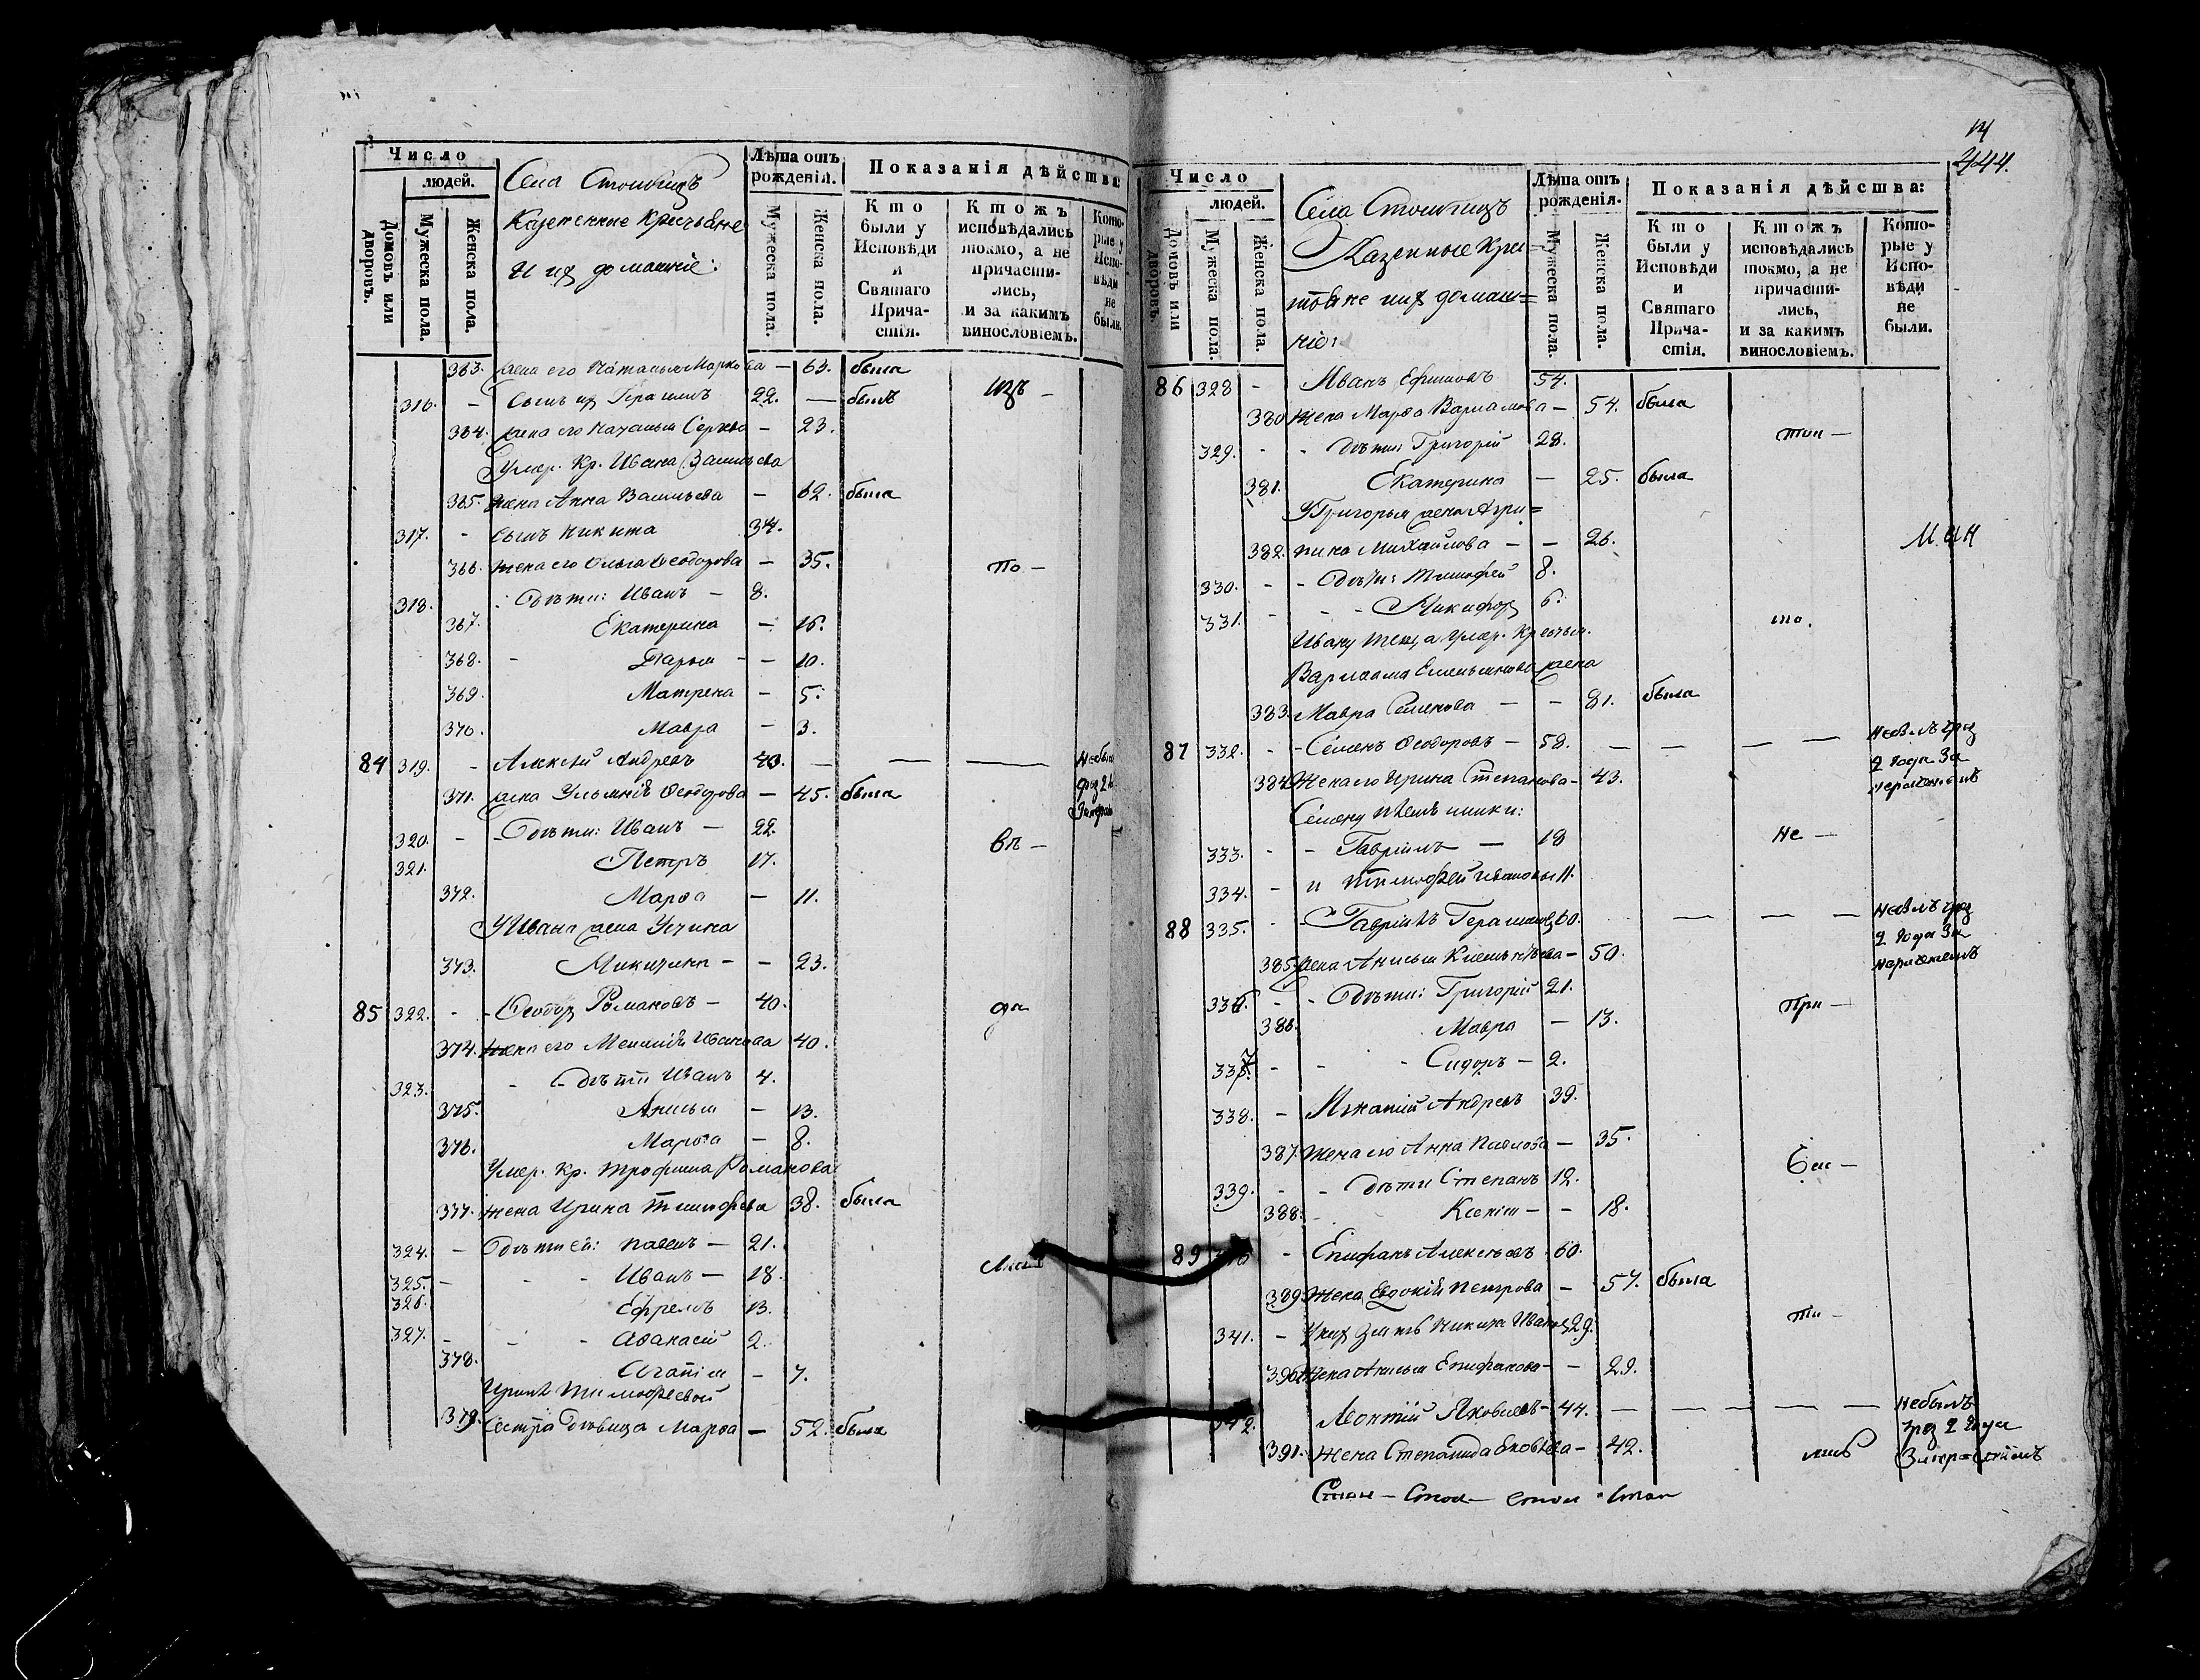 Число
людей.
Домовъ или дворовъ.
Мужеска пола.
Женска пола.
Села
Казенные
и их домашніе:
Лѣта отъ рожденія.
Мужеска пола.
Женска пола.
Показанія дѣйства:
Кто были у Исповѣди и Святаго Причастія.
Ктожъ исповѣдались токмо, а не причастились, и за какимъ винословіемъ.
Которые у Исповѣди не были.
363. жена его Наталья Маркова — 63. была
316. — сынъ их Герасимъ 22. — былъ
364. жена его — 23.
Умер. Кр. Ивана
365. жена Анна Васильева — 62. была
317. - сынъ Никита 34.
366. жена его Ольга Ѳеодорова — 35. то —
318. Дѣти: Иванъ — 8.
367. Екатерина — 16.
368. - Дарья — 10.
369. Матрена — 5.
370. Мавра — 3.
84 319. - Алексѣй Андреевъ 43. — — —
371. жена Ульянія Ѳеодорова — 45. была
320. - - Дѣти: Иванъ — 22. въ —
321. Петръ 17.
372. Марѳа — 11.
У Ивана жена Устина
373. Микитина — — 23.
85 322. - - Ѳеодор Романовъ — 40. да
374. жена его Меланія Иванова 40.
323. - - Дѣти Иванъ 4.
375. Анисья — 13.
376. Марѳа — 8.
Умер. Кр. Трофима Романова
377. жена Ирина Тимофѣева 38. была
324. — Дѣти ей: Павелъ — 21.
325. — - - Иванъ — 18.
326. Ефремъ 13.
327. — - - Аѳанасій 2.
378. Агапія — 7.
Иринѣ Тимофеевой
379. сестра дѣвица Марѳа — 52. была
14
444.
Число
людей.
Домовъ или дворовъ.
Мужеска пола.
Женска пола.
Села
Казенные Крес=
тьяне и их домаш=
ніе:
Лѣта отъ рожденія.
Мужеска пола.
Женска пола.
Показанія дѣйства:
Кто были у Исповѣди и Святаго Причастія.
Ктожъ исповѣдались токмо, а не причастились, и за какимъ винословіемъ.
Которые у Исповѣди не были.
86 328 - Иванъ Ефимовъ 54.
380 жена Марѳа Варламова — 54. была
329. - - Дѣти: Григорій 28.
381. Екатерина — 25. была
У Григорья жена Агри=
382. пина Михайлова — — 26.
330. - - Дѣти: Тимофей 8.
331. - - - Никифор 6.
Ивану теща умер. Крестьян.
Варлаама Емельянова жена
383. Мавра Семенова — — 81. была
87 332. - - Семенъ Ѳеодоровъ — 58. — — — —
384. Жена его Ирина Степанова — 43.
2 года за
Семену племянники:
333. - - Гавріилъ — 18 не —
334. - и Тимофей Ивановы 11.
88 335. - - Гавріилъ Герасимов 60. — — —
2 года за
385. жена Анисья — 50.
336. - - Дѣти: Григорій 21. При —
386. Мавра — 13.
337. - - - Сидоръ — 2.
338. - Игнатій Андреевъ 39.
387. Жена его Анна Павлова — 35.
339. - - Дѣти Степанъ 12.
388. - Ксенія — — 18.
89 - Епифанъ Алексѣевъ 60.
389. Жена Евдокія Петрова — 57. была
341. - У них зять Никита Иванов 29. ти —
390. Жена Анисья Епифанова — — 29.
Леонтій Яковлевъ — 44. — — — — — небылъ
чрез 2 года
391. Жена Степанида Яковлева — 42.